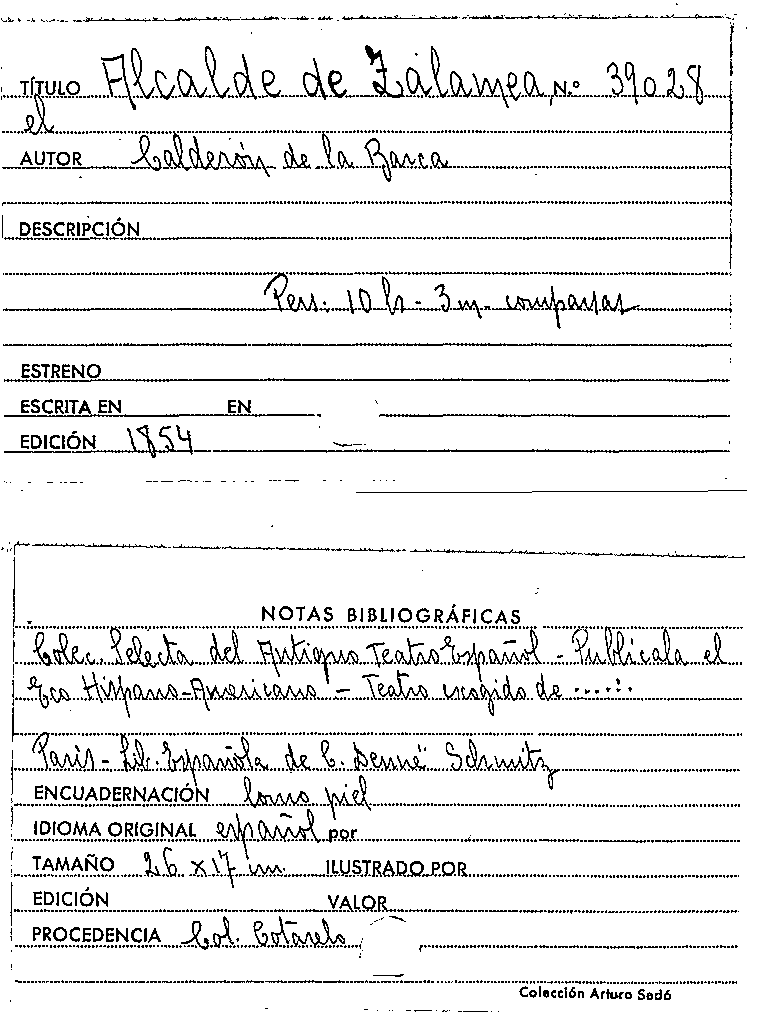 TÍTULO Alcalde de Zalamea, N.º 39028
el
AUTOR Calderón de la Barca
DESCRIPCIÓN
Pers: 10 h - 3 m - comparsas
ESTRENO
ESCRITA EN EN
EDICIÓN 1854
NOTAS BIBLIOGRÁFICAS
Colec. Selecta del Antiguo Teatro Español - Publícala el
Eco Hispano-Americano - Teatro escogido de ......
Paris - Lib. Española de C. Denné Schmitz
ENCUADERNACIÓN lomo piel
IDIOMA ORIGINAL español por
TAMAÑO 26 x 17 cm. ILUSTRADO POR
EDICIÓN VALOR
PROCEDENCIA Col. Cotarelo
Colección Arturo Sedó